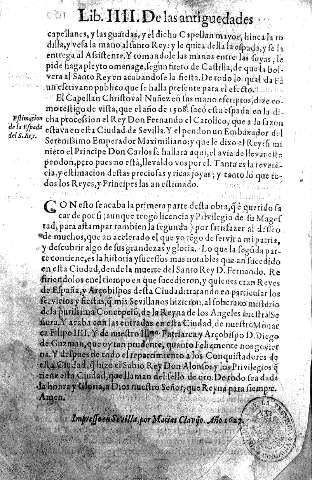 Lib. IIII. De las antiguedades
capellanes, y las guardas, y el dicho Capellan mayor, hinca la ro
dilla, y vesa la mano al santo Rey: y le quita della la espada, y se la
entrega al Asistente, Y tomandole las manos entre las suyas, le
pide haga pleyto omenaje, segun fuero de Castilla, de que la bol-
vera al Santo Rey en acabandose la fiesta. De todo lo qual da Fè
un escrivano publico que se halla presente para el efecto.
El Capellan Christoval Nuñez en sus mano escriptos, dize co-
mo testigo de vista, que el año de 1508. sacò esta espada en la di-
cha procession el Rey Don Fernando el Catolico, que a la sazon
estava en esta Ciudad de Sevilla. Y el pendon un Embaxador del
Serenissimo Emperador Maximiliano: y que le dixo el Rey si mi
nieto el Principe Don Carlos se hallara aqui, el avia de llevar este
pendon, pero pues no està, llevaldo vos por el. Tanta es la reveren-
cia, y estimacion destas preciosas y ricas joyas; y tanto lo que to-
dos los Reyes, y Principes las an estimado.
Estimacion
de la Espada
del S. Rey.
CON esto se acaba la primera parte desta obra, que è querido sa
car de por si; aunque tengo licencia y Privilegio de su Mages
tad, para estampar tambien la segunda; por satisfazer al desseo
de muchos, que an acelerado el que yo tègo de servir a mi patria,
y descubrir algo de sus grandezas y gloria. Lo que la segūda par-
te contiene, es la historia y sucessos mas notables que an sucedido
en esta Ciudad, dende la muerte del Santo Rey D. Fernando. Re
firiendolos en el tiempo en que sucedieron, y quienes eran Reyes
de España, y Arçobispos desta Ciudad: tratando en particular los
servicios y fiestas, q̃ mis Sevillanos hizieron, al soberano misterio
de la purissima Concepciõ, de la Reyna de los Angeles nuestra Se
ñora. Y acaba con las entradas en esta Ciudad, de nuestro Monar
ca Filipo IIII. Y de nuestro Illmo. Patriarca y Arçobispo D. Diego
de Guzman, que oy tan prudente, quanto Felizmente nos govier
na. Y despues de todo el repartimiento a los Conquistadores de
esta Ciudad, q̃ hizo el Sabio Rey Don Alonso y los Privilegios q̃
tiene esta Ciudad, que llaman del sello de oro. De todo sea dada
la honra y Gloria, a Dios nuestro Señor, que Reyna para siempre.
Amen.
Impresso en Sevilla, por Matias Clavijo. Año 1627.